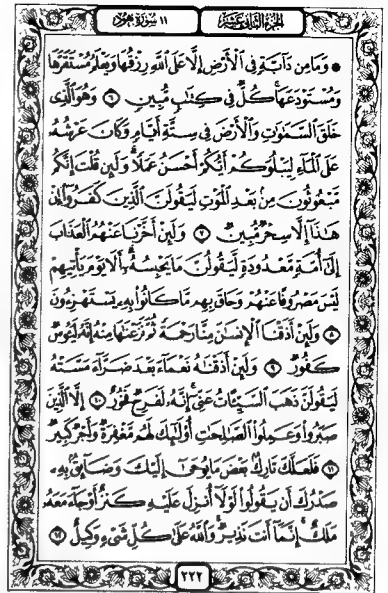 ١١ سورة هود
الجزء الثاني عشر
۞ وَمَا مِن دَآبَّةٍ فِي ٱلْأَرْضِ إِلَّا عَلَى ٱللَّهِ رِزْقُهَا وَيَعْلَمُ مُسْتَقَرَّهَا
وَمُسْتَوْدَعَهَا كُلٌّ فِي كِتَٰبٍ مُّبِينٍ ٦ وَهُوَ ٱلَّذِي
خَلَقَ ٱلسَّمَٰوَٰتِ وَٱلْأَرْضَ فِي سِتَّةِ أَيَّامٍ وَكَانَ عَرْشُهُۥ
عَلَى ٱلْمَآءِ لِيَبْلُوَكُمْ أَيُّكُمْ أَحْسَنُ عَمَلًا وَلَئِن قُلْتَ إِنَّكُم
مَّبْعُوثُونَ مِنۢ بَعْدِ ٱلْمَوْتِ لَيَقُولَنَّ ٱلَّذِينَ كَفَرُوٓا۟ إِنْ
هَٰذَآ إِلَّا سِحْرٌ مُّبِينٌ ٧ وَلَئِنْ أَخَّرْنَا عَنْهُمُ ٱلْعَذَابَ
إِلَىٰٓ أُمَّةٍ مَّعْدُودَةٍ لَّيَقُولُنَّ مَا يَحْبِسُهُۥٓ أَلَا يَوْمَ يَأْتِيهِمْ
لَيْسَ مَصْرُوفًا عَنْهُمْ وَحَاقَ بِهِم مَّا كَانُوا۟ بِهِۦ يَسْتَهْزِءُونَ
٨ وَلَئِنْ أَذَقْنَا ٱلْإِنسَٰنَ مِنَّا رَحْمَةً ثُمَّ نَزَعْنَٰهَا مِنْهُ إِنَّهُۥ لَيَـُٔوسٌ
كَفُورٌ ٩ وَلَئِنْ أَذَقْنَٰهُ نَعْمَآءَ بَعْدَ ضَرَّآءَ مَسَّتْهُ
لَيَقُولَنَّ ذَهَبَ ٱلسَّيِّـَٔاتُ عَنِّيٓ إِنَّهُۥ لَفَرِحٌ فَخُورٌ ١٠ إِلَّا ٱلَّذِينَ
صَبَرُوا۟ وَعَمِلُوا۟ ٱلصَّٰلِحَٰتِ أُو۟لَٰٓئِكَ لَهُم مَّغْفِرَةٌ وَأَجْرٌ كَبِيرٌ
١١ فَلَعَلَّكَ تَارِكٌۢ بَعْضَ مَا يُوحَىٰٓ إِلَيْكَ وَضَآئِقٌۢ بِهِۦ
صَدْرُكَ أَن يَقُولُوا۟ لَوْلَآ أُنزِلَ عَلَيْهِ كَنزٌ أَوْ جَآءَ مَعَهُۥ
مَلَكٌ إِنَّمَآ أَنتَ نَذِيرٌ وَٱللَّهُ عَلَىٰ كُلِّ شَيْءٍ وَكِيلٌ ١٢
٢٢٢